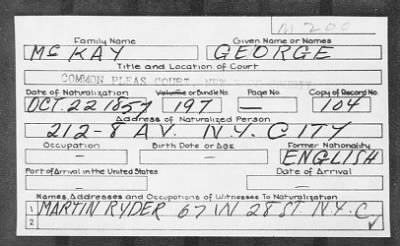 M 200
Family Name Given Name or Names
McKAY GEORGE
Title and Location of Court
COMMON PLEAS COURT, NEW YORK COUNTY
Date of Naturalization Volume or Bundle No. Page No. Copy of Record No.
OCT. 22 1857 197 — 104
Address of Naturalized Person
212-8 AV. N.Y. CITY
Occupation Birth Date or Age Former Nationality
— — ENGLISH
Port of Arrival in the United States Date of Arrival
— —
Names, Addresses and Occupations of Witnesses To Naturalization
1 MARTIN RYDER 67 W 28 ST. N.Y. C
2